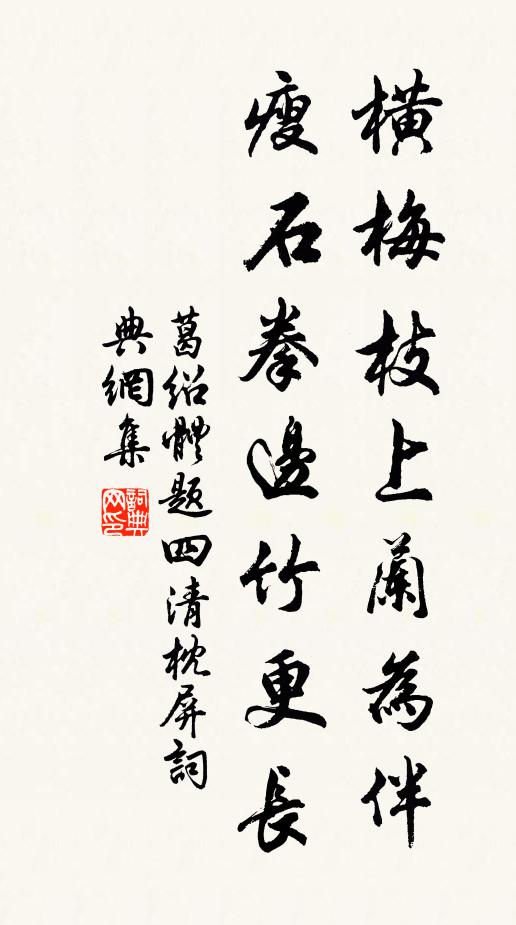 橫梅枝上蘭為伴
瘦石拳邊竹更長
葛紹體題四清枕屏詞
典網集
詞典網印